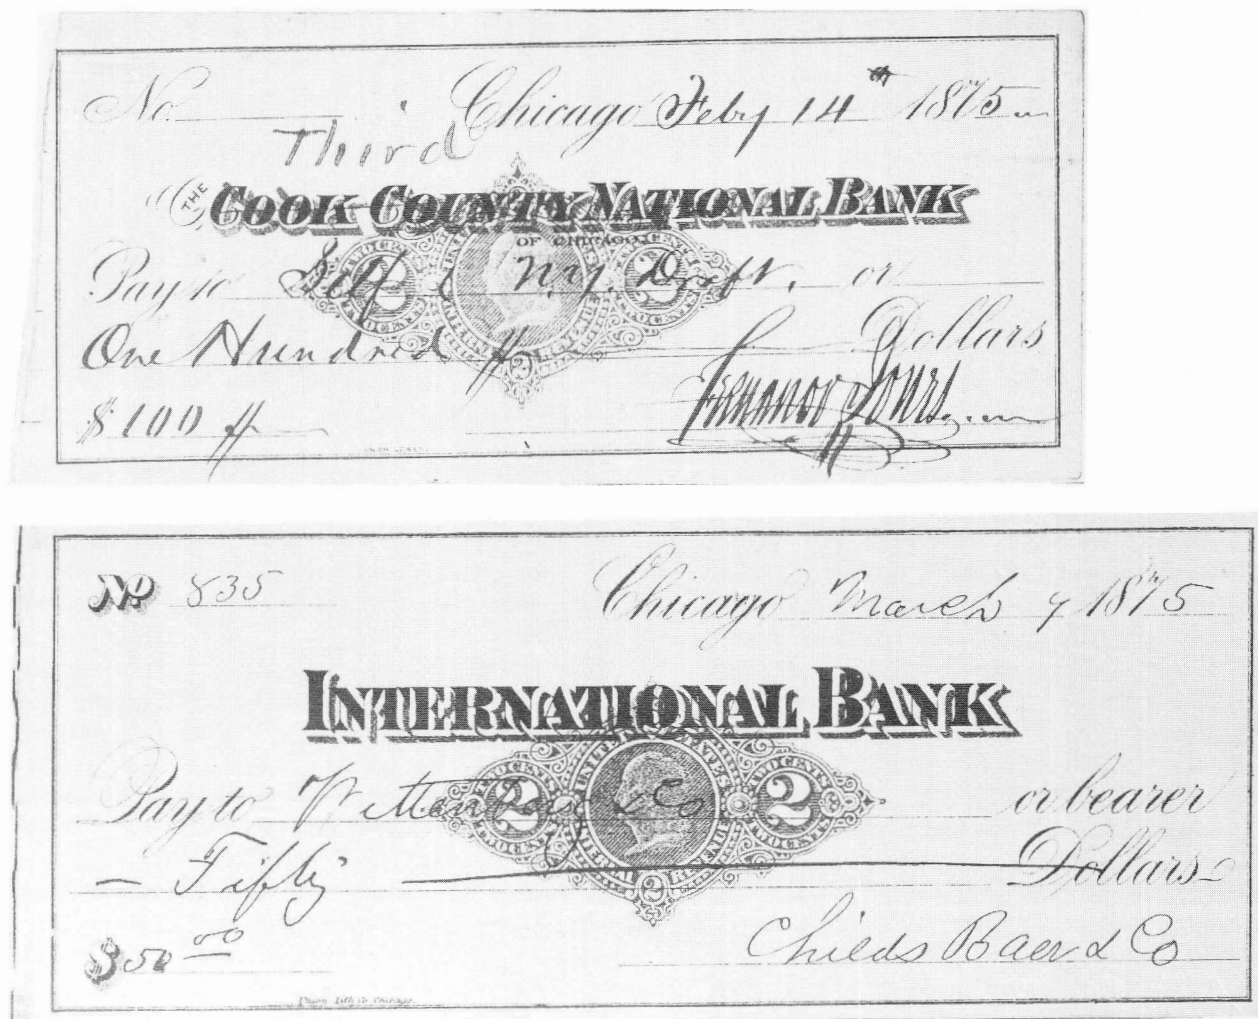 No. Chicago Feby 14th 1875
Third
THE COOK COUNTY NATIONAL BANK
OF CHICAGO
Pay to Self N.Y. Draft. or
One Hundred Dollars
$100
Fernando Jones
No 835 Chicago March 9 1875
INTERNATIONAL BANK
2 2
Pay to & Co or bearer
— Fifty Dollars
2
$50 00 Childs Baer & Co
Union Lith Co Chicago.